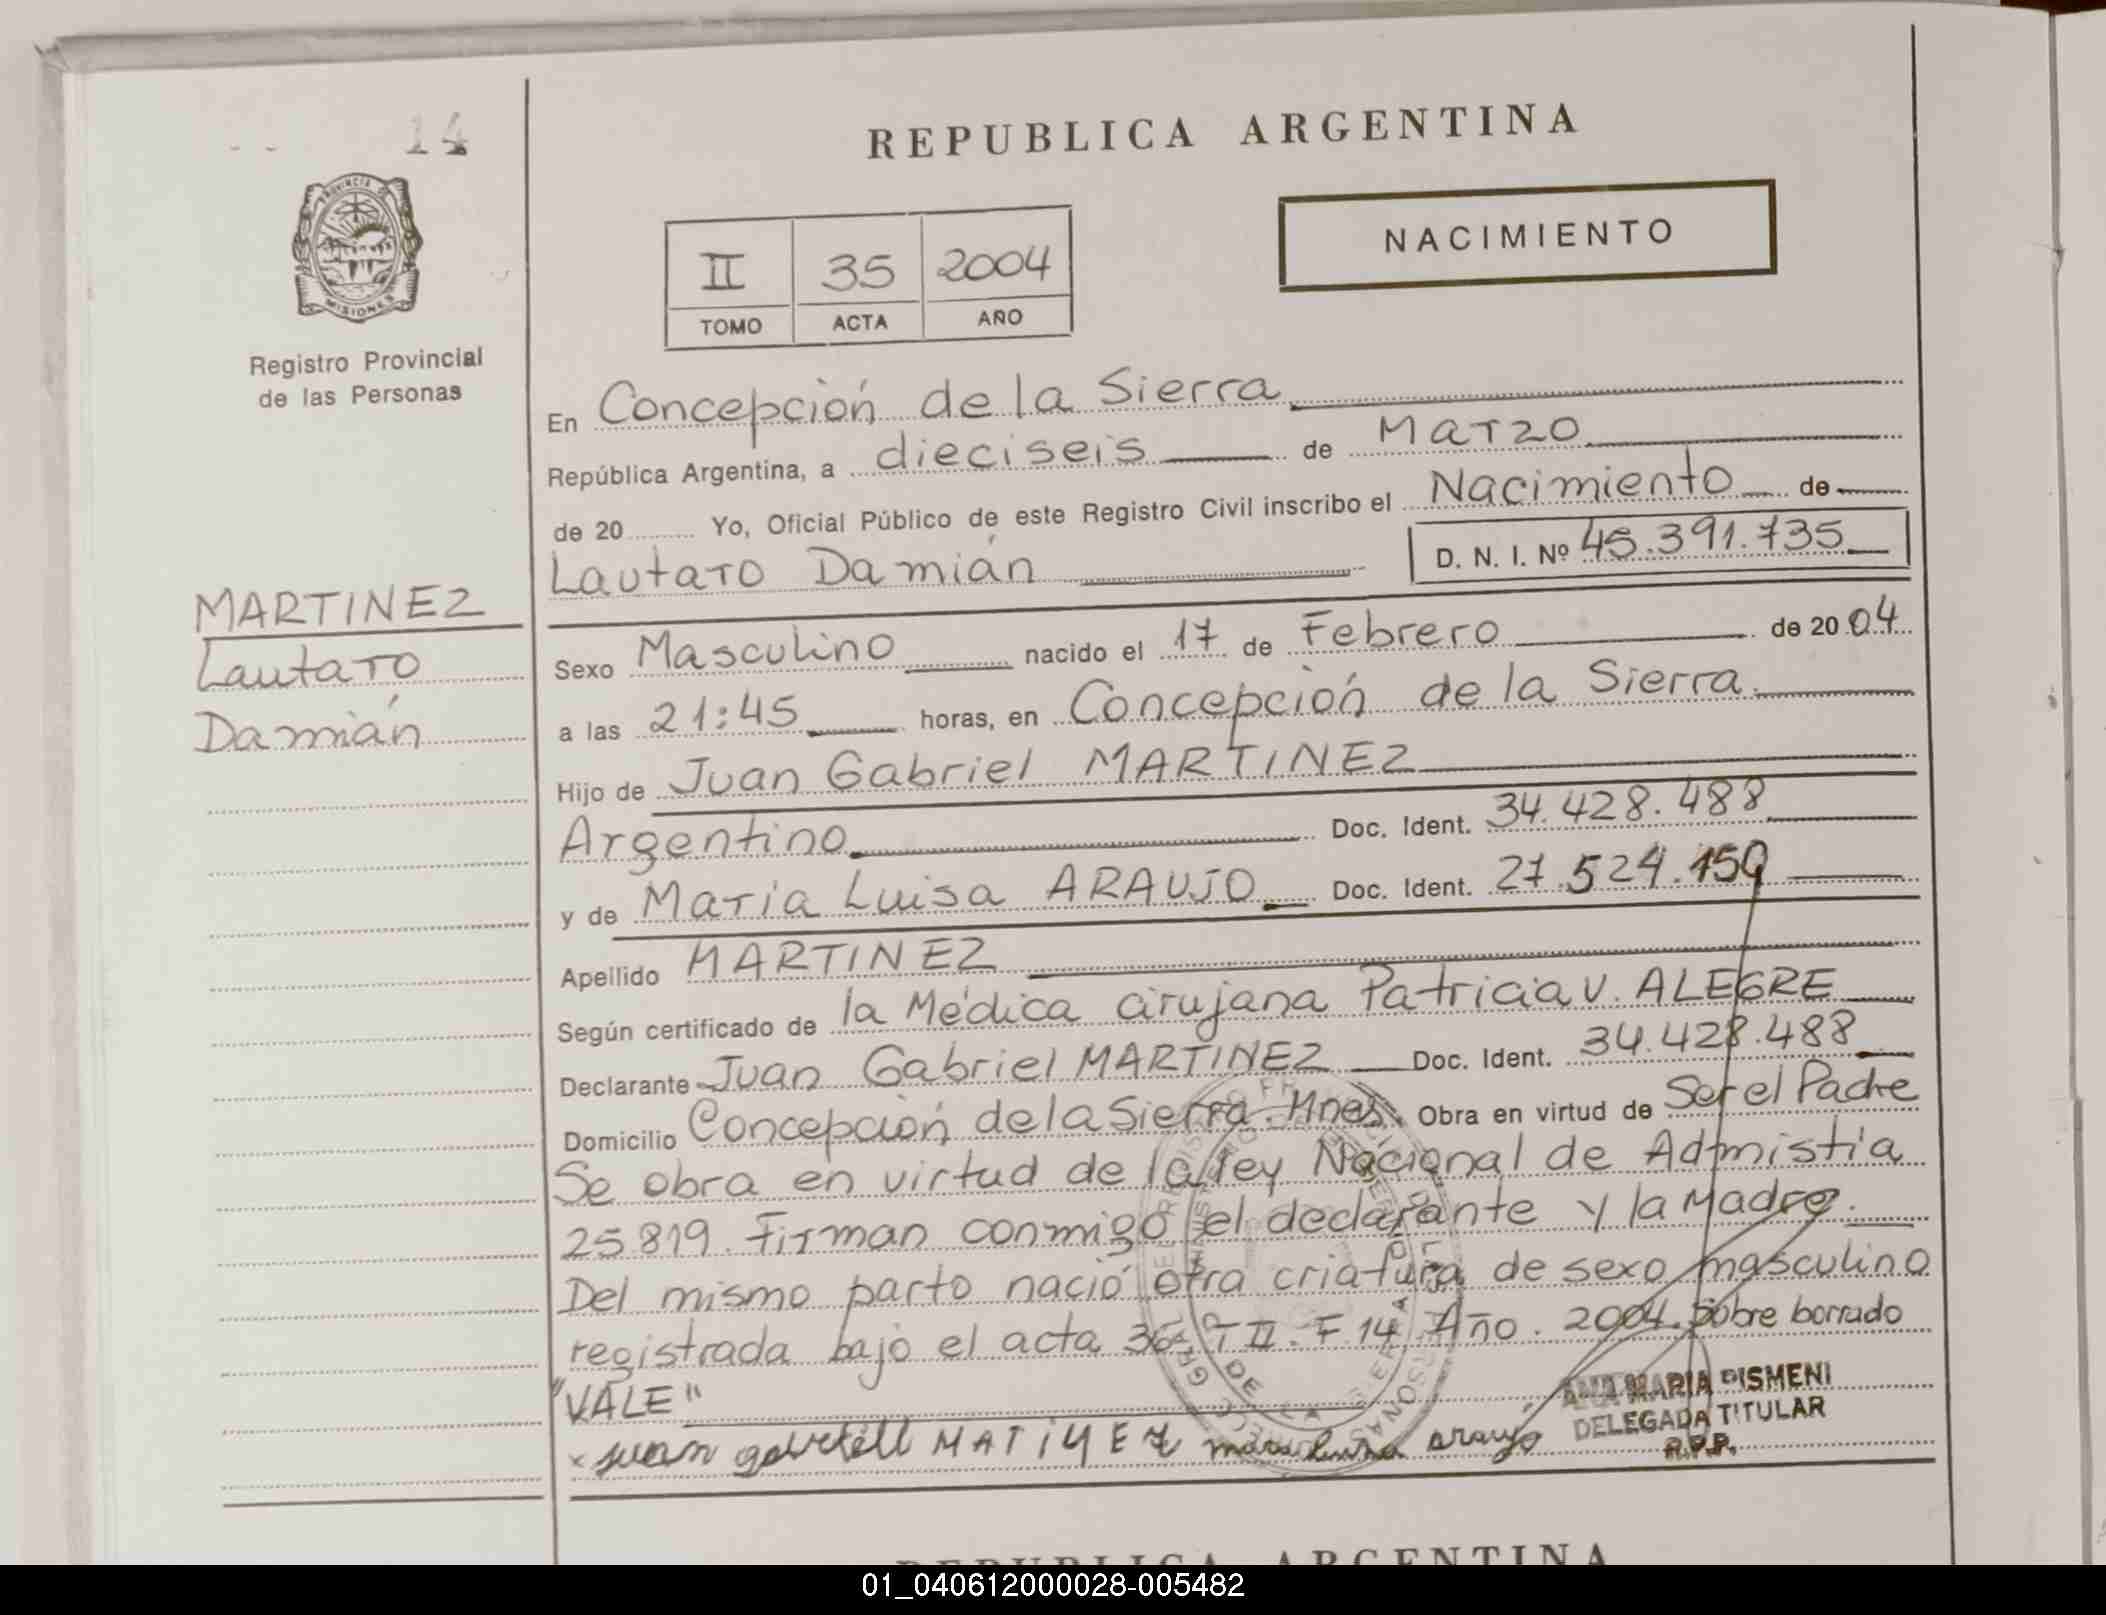 14
REPUBLICA ARGENTINA
PROVINCIA DE
MISIONES
Registro Provincial
de las Personas
II 35 2004
TOMO ACTA AÑO
NACIMIENTO
En Concepción de la Sierra
República Argentina, a dieciseis de Marzo
de 20 Yo, Oficial Público de este Registro Civil inscribo el Nacimiento de
Lautaro Damián D. N. I. Nº 45.391.735
MARTINEZ
Lautaro
Damián
Sexo Masculino nacido el 17 de Febrero de 2004
a las 21:45 horas, en Concepción de la Sierra
Hijo de Juan Gabriel MARTINEZ
Argentino Doc. Ident. 34.428.488
y de Maria Luisa ARAUJO Doc. Ident. 27.524.159
Apellido MARTINEZ
Según certificado de la Médica cirujana Patricia V. ALEGRE
Declarante Juan Gabriel MARTINEZ Doc. Ident. 34.428.488
Domicilio Concepción de la Sierra. Mnes. Obra en virtud de Ser el Padre
Se obra en virtud de la ley Nacional de Admistia
25.819. Firman conmigo el declarante y la Madre.
Del mismo parto nació otra criatura de sexo masculino
registrada bajo el acta 36 T II. F. 14 Año. 2004. sobre borrado
"VALE"
ANA MARIA PISMENI
DELEGADA TITULAR
R.P.P.
x juan gabriell MATiNEZ maria luisa araujo
REPUBLICA ARGENTINA
01_040612000028-005482